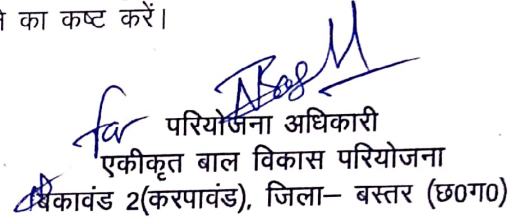 का कष्ट करें।
for परियोजना अधिकारी
एकीकृत बाल विकास परियोजना
बकावंड 2(करपावंड), जिला– बस्तर (छ०ग०)